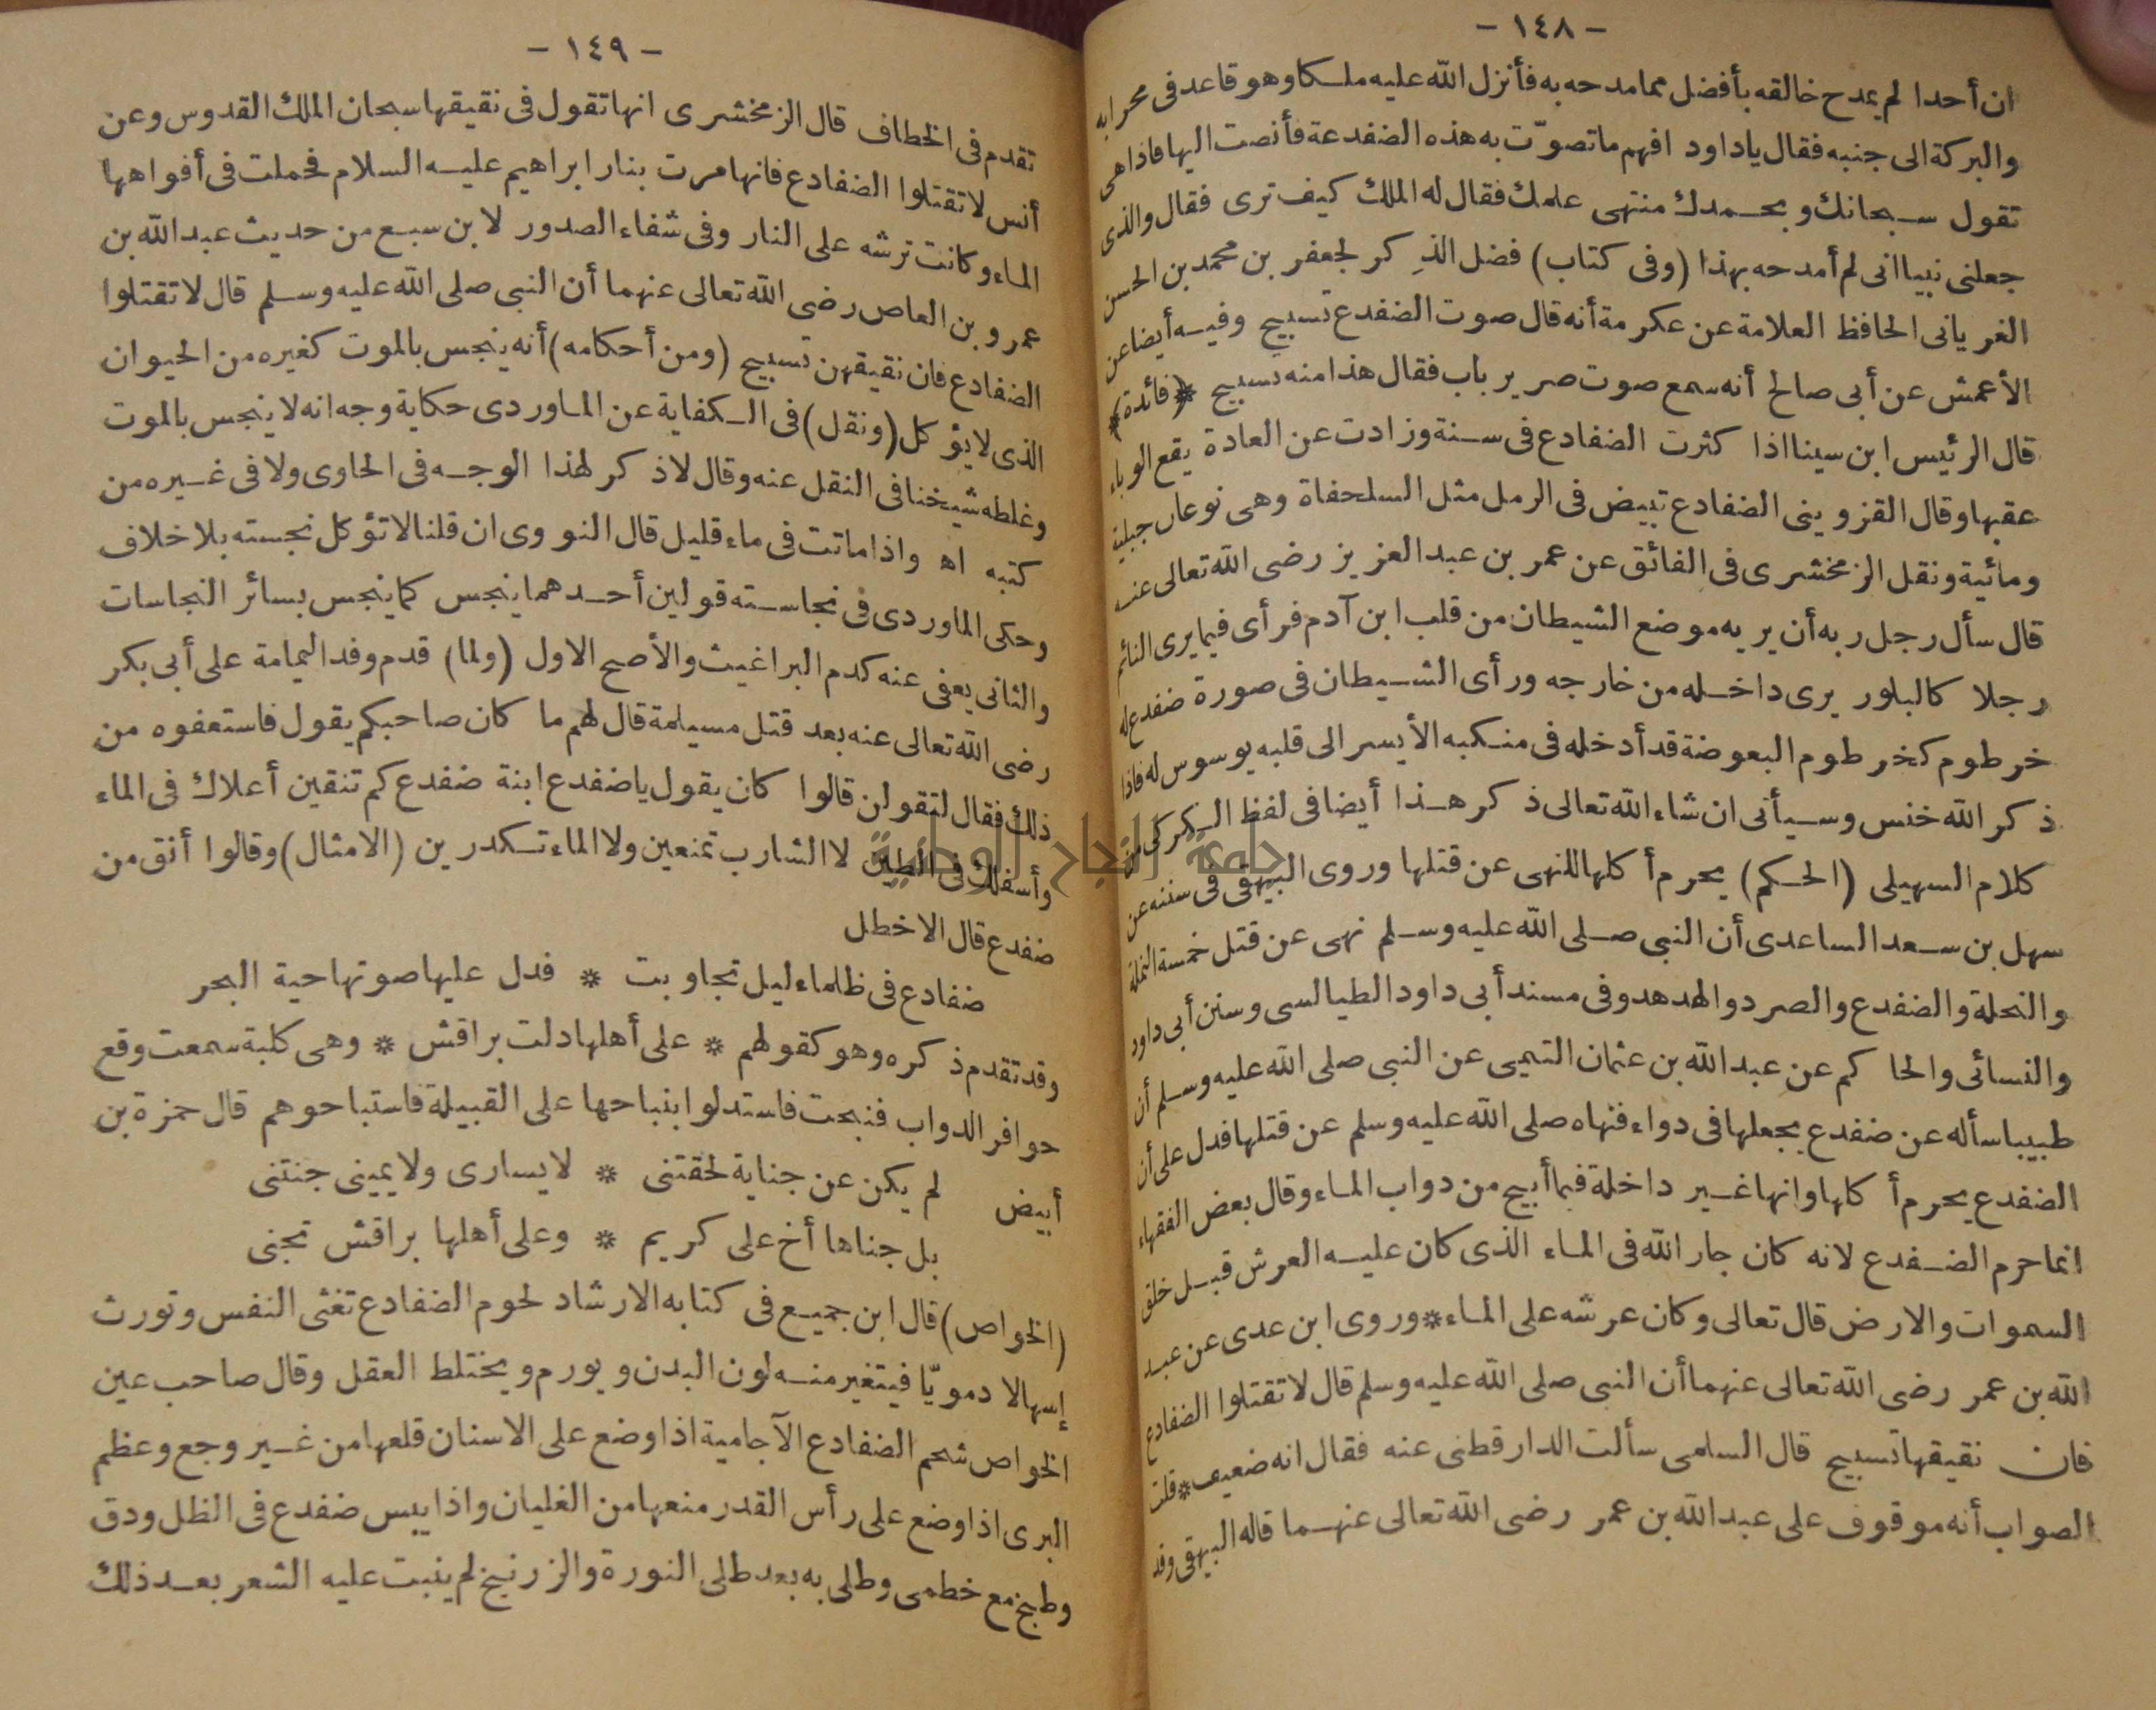 - ١٤٨ -
ان أحدا لم يمدح خالقه بأفضل مما مدحه به فأنزل الله عليه ملكا وهو قاعد فى محرابه
والبركة الى جنبه فقال ياداود افهم ما تصوّت به هذه الضفدعة فأنصت اليها فاذا هى
تقول سبحانك وبحمدك منتهى علمك فقال له الملك كيف ترى فقال والذى
جعلنى نبيا انى لم أمدحه بهذا (وفى كتاب) فضل الذكر لجعفر بن محمد بن الحسن
الغريانى الحافظ العلامة عن عكرمة أنه قال صوت الضفدع تسبيح وفيه أيضا عن
الأعمش عن أبى صالح أنه سمع صوت صرير باب فقال هذا منه تسبيح * (فائدة) *
قال الرئيس ابن سينا اذا كثرت الضفادع فى سنة وزادت عن العادة يقع الوباء
عقبها وقال القزوينى الضفادع تبيض فى الرمل مثل السلحفاة وهى نوعان جبلية
ومائية ونقل الزمخشرى فى الفائق عن عمر بن عبد العزيز رضى الله تعالى عنه
قال سأل رجل ربه أن يريه موضع الشيطان من قلب ابن آدم فرأى فيما يرى النائم
رجلا كالبلور يرى داخله من خارجه ورأى الشيطان فى صورة ضفدع له
خرطوم كخرطوم البعوضة قد أدخله فى منكبه الأيسر الى قلبه يوسوس له فاذا
ذكر الله خنس وسيأتى ان شاء الله تعالى ذكر هذا أيضا فى لفظ الكركى من
كلام السهيلى (الحكم) يحرم أكلها للنهى عن قتلها وروى البيهقى فى سننه عن
سهل بن سعد الساعدى أن النبى صلى الله عليه وسلم نهى عن قتل خمسة النملة
والنحلة والضفدع والصرد والهدهد وفى مسند أبى داود الطيالسى وسنن أبى داود
والنسائى والحاكم عن عبد الله بن عثمان التيمى عن النبى صلى الله عليه وسلم أن
طبيبا سأله عن ضفدع يجعلها فى دواء فنهاه صلى الله عليه وسلم عن قتلها فدل على أن
الضفدع يحرم أكلها وانها غير داخلة فيما أبيح من دواب الماء وقال بعض الفقهاء
انما حرم الضفدع لانه كان جار الله فى الماء الذى كان عليه العرش قبل خلق
السموات والارض قال تعالى وكان عرشه على الماء * وروى ابن عدى عن عبد
الله بن عمر رضى الله تعالى عنهما أن النبى صلى الله عليه وسلم قال لا تقتلوا الضفادع
فان نقيقها تسبيح قال السلمى سألت الدارقطنى عنه فقال انه ضعيف * قلت
الصواب أنه موقوف على عبد الله بن عمر رضى الله تعالى عنهما قاله البيهقى وقد
- ١٤٩ -
تقدم فى الخطاف قال الزمخشرى انها تقول فى نقيقها سبحان الملك القدوس وعن
أنس لا تقتلوا الضفادع فانها مرت بنار ابراهيم عليه السلام فحملت فى أفواهها
الماء وكانت ترشه على النار وفى شفاء الصدور لابن سبع من حديث عبد الله بن
عمرو بن العاص رضى الله تعالى عنهما أن النبى صلى الله عليه وسلم قال لا تقتلوا
الضفادع فان نقيقهن تسبيح (ومن أحكامه) أنه ينجس بالموت كغيره من الحيوان
الذى لا يؤكل (ونقل) فى الكفاية عن الماوردى حكاية وجه انه لا ينجس بالموت
وغلطه شيخنا فى النقل عنه وقال لا ذكر لهذا الوجه فى الحاوى ولا فى غيره من
كتبه اه واذا ماتت فى ماء قليل قال النووى ان قلنا لا تؤكل نجسته بلا خلاف
وحكى الماوردى فى نجاسته قولين أحدهما ينجس كما ينجس بسائر النجاسات
والثانى يعفى عنه كدم البراغيث والأصح الاول (ولما) قدم وفد اليمامة على أبى بكر
رضى الله تعالى عنه بعد قتل مسيلمة قال لهم ما كان صاحبكم يقول فاستعفوه من
ذلك فقال لتقولن قالوا كان يقول يا ضفدع ابنة ضفدع كم تنقين أعلاك فى الماء
وأسفلك فى الطين لا الشارب تمنعين ولا الماء تكدرين (الامثال) وقالوا أنق من
ضفدع قال الاخطل
ضفادع فى ظلماء ليل تجاوبت * فدل عليها صوتها حية البحر
وقد تقدم ذكره وهو كقولهم * على أهلها دلت براقش * وهى كلبة سمعت وقع
حوافر الدواب فنبحت فاستدلوا بنباحها على القبيلة فاستباحوهم قال حمزة بن
أبيض لم يكن عن جناية لحقتنى * لا يسارى ولا يمينى جنتنى
بل جناها أخ على كريم * وعلى أهلها براقش تجنى
(الخواص) قال ابن جميع فى كتابه الارشاد لحوم الضفادع تغثى النفس وتورث
إسهالا دمويّا فيتغير منه لون البدن ويورم ويختلط العقل وقال صاحب عين
الخواص شحم الضفادع الآجامية اذا وضع على الاسنان قلعها من غير وجع وعظم
البرى اذا وضع على رأس القدر منعها من الغليان واذا يبس ضفدع فى الظل ودق
وطبخ مع خطمى وطلى به بعد طلى النورة والزرنيخ لم ينبت عليه الشعر بعد ذلك
جامعة النجاح الوطنية